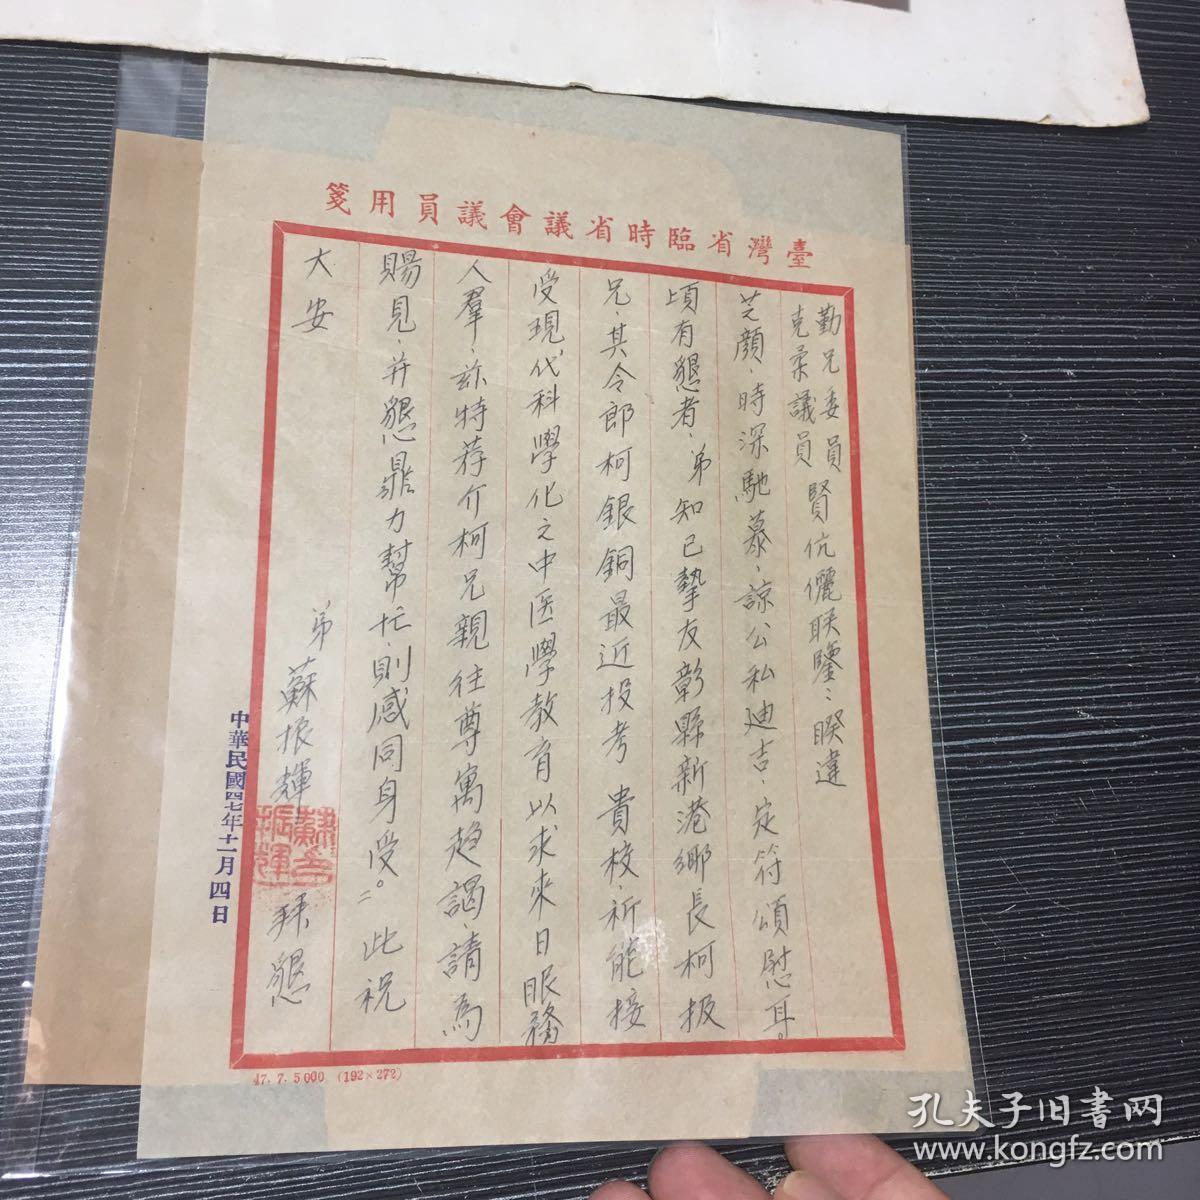 臺灣省臨時省議會議員用箋
勤兄委員
克柔議員
賢伉儷联鑒：睽違
芝顏，時深馳慕，諒公私迪吉，定符頌慰耳。
頃有懇者，弟知己摯友彰縣新港鄉長柯扱
兄，其令郎柯銀銅最近投考 貴校，祈能接
受現代科學化之中医學教育以求來日服務
人羣，茲特荐介柯兄親往尊寓趋謁，請為
賜見，并懇鼎力幫忙，則感同身受。此祝
大安
弟 蘇振輝 拜懇
中華民國四七年十一月四日
47. 7. 5000 (192×272)
孔夫子旧书网
www.kongfz.com